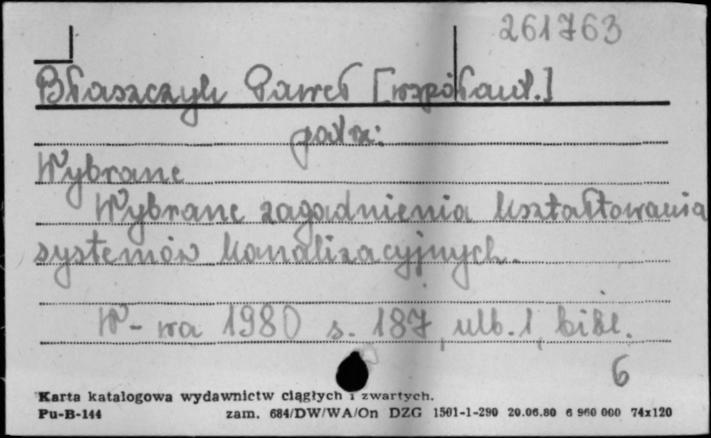 261763
Błaszczyk Paweł [współaut.]
patrz:
Wybrane
Wybrane zagadnienia kształtowania
systemów kanalizacyjnych.
W-wa 1980 s. 187, ulb. 1, bibl.
6
Karta katalogowa wydawnictw ciągłych i zwartych.
Pu-B-144 zam. 684/DW/WA/On DZG 1501-1-290 20.06.80 6 960 000 74x120